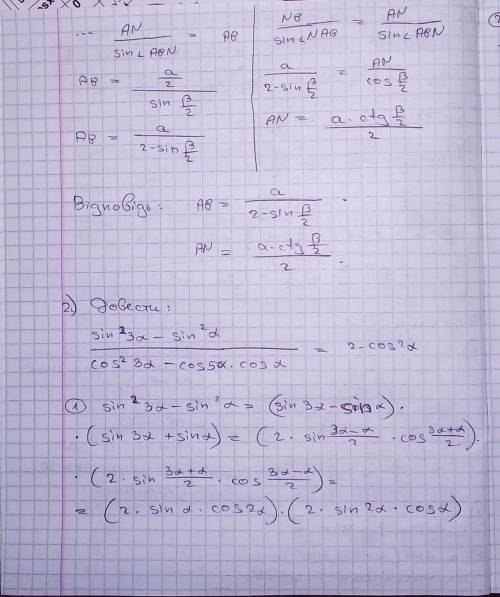 ... AN / sin∠ABN = AB
AB = (a/2) / (sin β/2)
AB = a / (2-sin β/2)
NB / sin∠NAB = AN / sin∠ABN
a / (2-sin β/2) = AN / (cos β/2)
AN = (a·ctg β/2) / 2
Відповідь: AB = a / (2-sin β/2) .
AN = (a·ctg β/2) / 2 .
2) Довести:
(sin²3α - sin²α) / (cos²3α - cos5α·cosα) = 2-cos²α
① sin²3α - sin²α = (sin3α - sinα)·
·(sin3α + sinα) = (2·sin (3α-α)/2 · cos (3α+α)/2)·
·(2·sin (3α+α)/2 · cos (3α-α)/2) =
= (2·sinα·cos2α)·(2·sin2α·cosα)